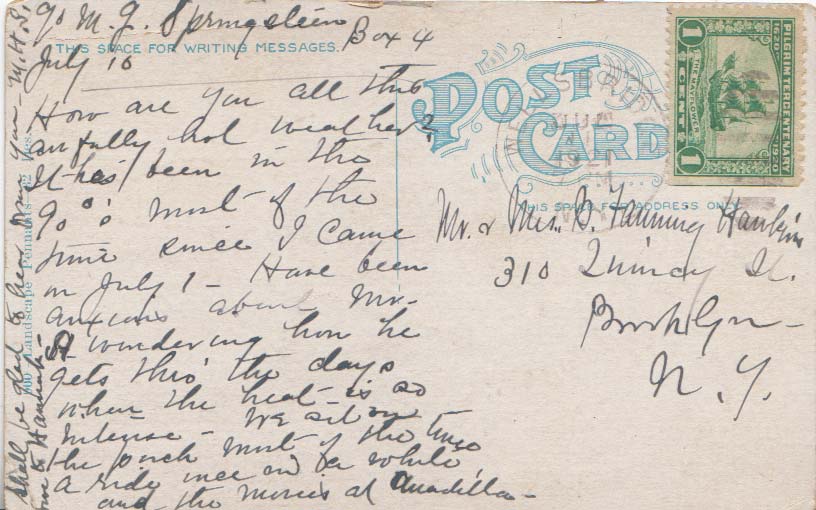 ℅ M. J. Springstein
Box 4
THIS SPACE FOR WRITING MESSAGES.
July 10
How are you all this
awfully hot weather?
It has been in the
90°s most of the
time since I came
on July 1 - Have been
anxious about Mr.
H wondering how he
gets thro' the days
when the heat is so
intense - We sit on
the porch most of the time
a ride once in a while,
and the movies at Unadilla -
Shall be glad to hear from you - M.H.S.
to Hannah -
Landscape
POST
CARD
1921
PILGRIM TERCENTENARY
1620 1920
THE MAYFLOWER
1 CENT 1
THIS SPACE FOR ADDRESS ONLY
Mr. & Mrs. B. Fanning Hankin
310 Quincy St.
Brooklyn -
N. Y.